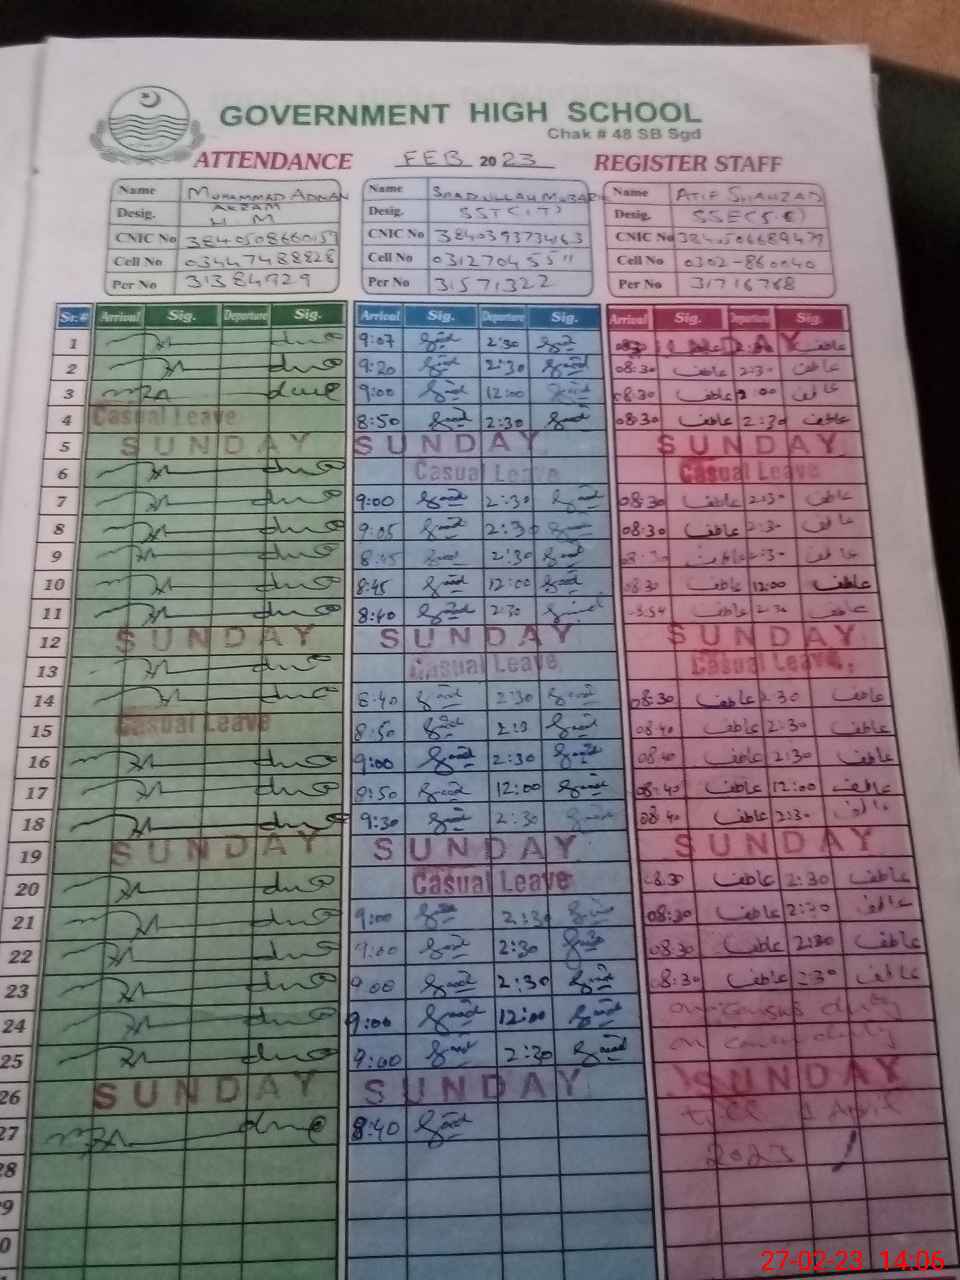 GOVERNMENT HIGH SCHOOL
Chak # 48 SB Sgd
ATTENDANCE FEB 2023 REGISTER STAFF
Name MUHAMMAD ADNAN AKRAM Name SAADULLAH Name ATIF SHAHZAD
Desig. H M Desig. SST (IT) Desig. SSE
CNIC No CNIC No CNIC No
Cell No 03447488828 Cell No Cell No 0302-860
Per No 31384929 Per No 31571322 Per No 31716768
Sr.# Arrival Sig. Departure Sig. Arrival Sig. Departure Sig. Arrival Sig. Departure Sig.
1 9:07 Saad 2:30 Saad عاطف
2 9:20 Saad 2:30 Saad 08:30 عاطف 2:30 عاطف
3 9:00 Saad 12:00 Saad 08:30 عاطف عاطف
4 Casual Leave 8:50 Saad 2:30 Saad 08:30 عاطف 2:30 عاطف
5 SUNDAY SUNDAY SUNDAY
6 Casual Leave Casual Leave
7 9:00 Saad 2:30 Saad 08:30 عاطف 2:30 عاطف
8 9:05 Saad 2:30 Saad 08:30 عاطف 2:30 عاطف
9 8:45 Saad 2:30 Saad عاطف 2:30 عاطف
10 8:45 Saad 12:00 Saad 08:30 عاطف 12:00 عاطف
11 8:40 Saad 2:30 Saad عاطف 2:30 عاطف
12 SUNDAY SUNDAY SUNDAY
13 Casual Leave Casual Leave
14 8:40 Saad 2:30 Saad 08:30 عاطف 2:30 عاطف
15 Casual Leave 8:50 Saad 2:3 Saad 08:40 عاطف 2:30 عاطف
16 9:00 Saad 2:30 Saad 08:40 عاطف 2:30 عاطف
17 8:50 Saad 12:00 Saad 08:40 عاطف 12:00 عاطف
18 9:30 Saad 2:30 Saad 08:40 عاطف 2:30 عاطف
19 SUNDAY SUNDAY SUNDAY
20 Casual Leave 08:30 عاطف 2:30 عاطف
21 9:00 Saad 2:30 Saad 08:30 عاطف 2:30 عاطف
22 9:00 Saad 2:30 Saad 08:30 عاطف 2:30 عاطف
23 9:00 Saad 2:30 Saad 08:30 عاطف 2:30 عاطف
24 9:00 Saad 12:00 Saad on census duty
25 9:00 Saad 2:30 Saad on census duty
26 SUNDAY SUNDAY SUNDAY
27 8:40 Saad till 1 April
28 2023
9
0
27-02-23 14:06